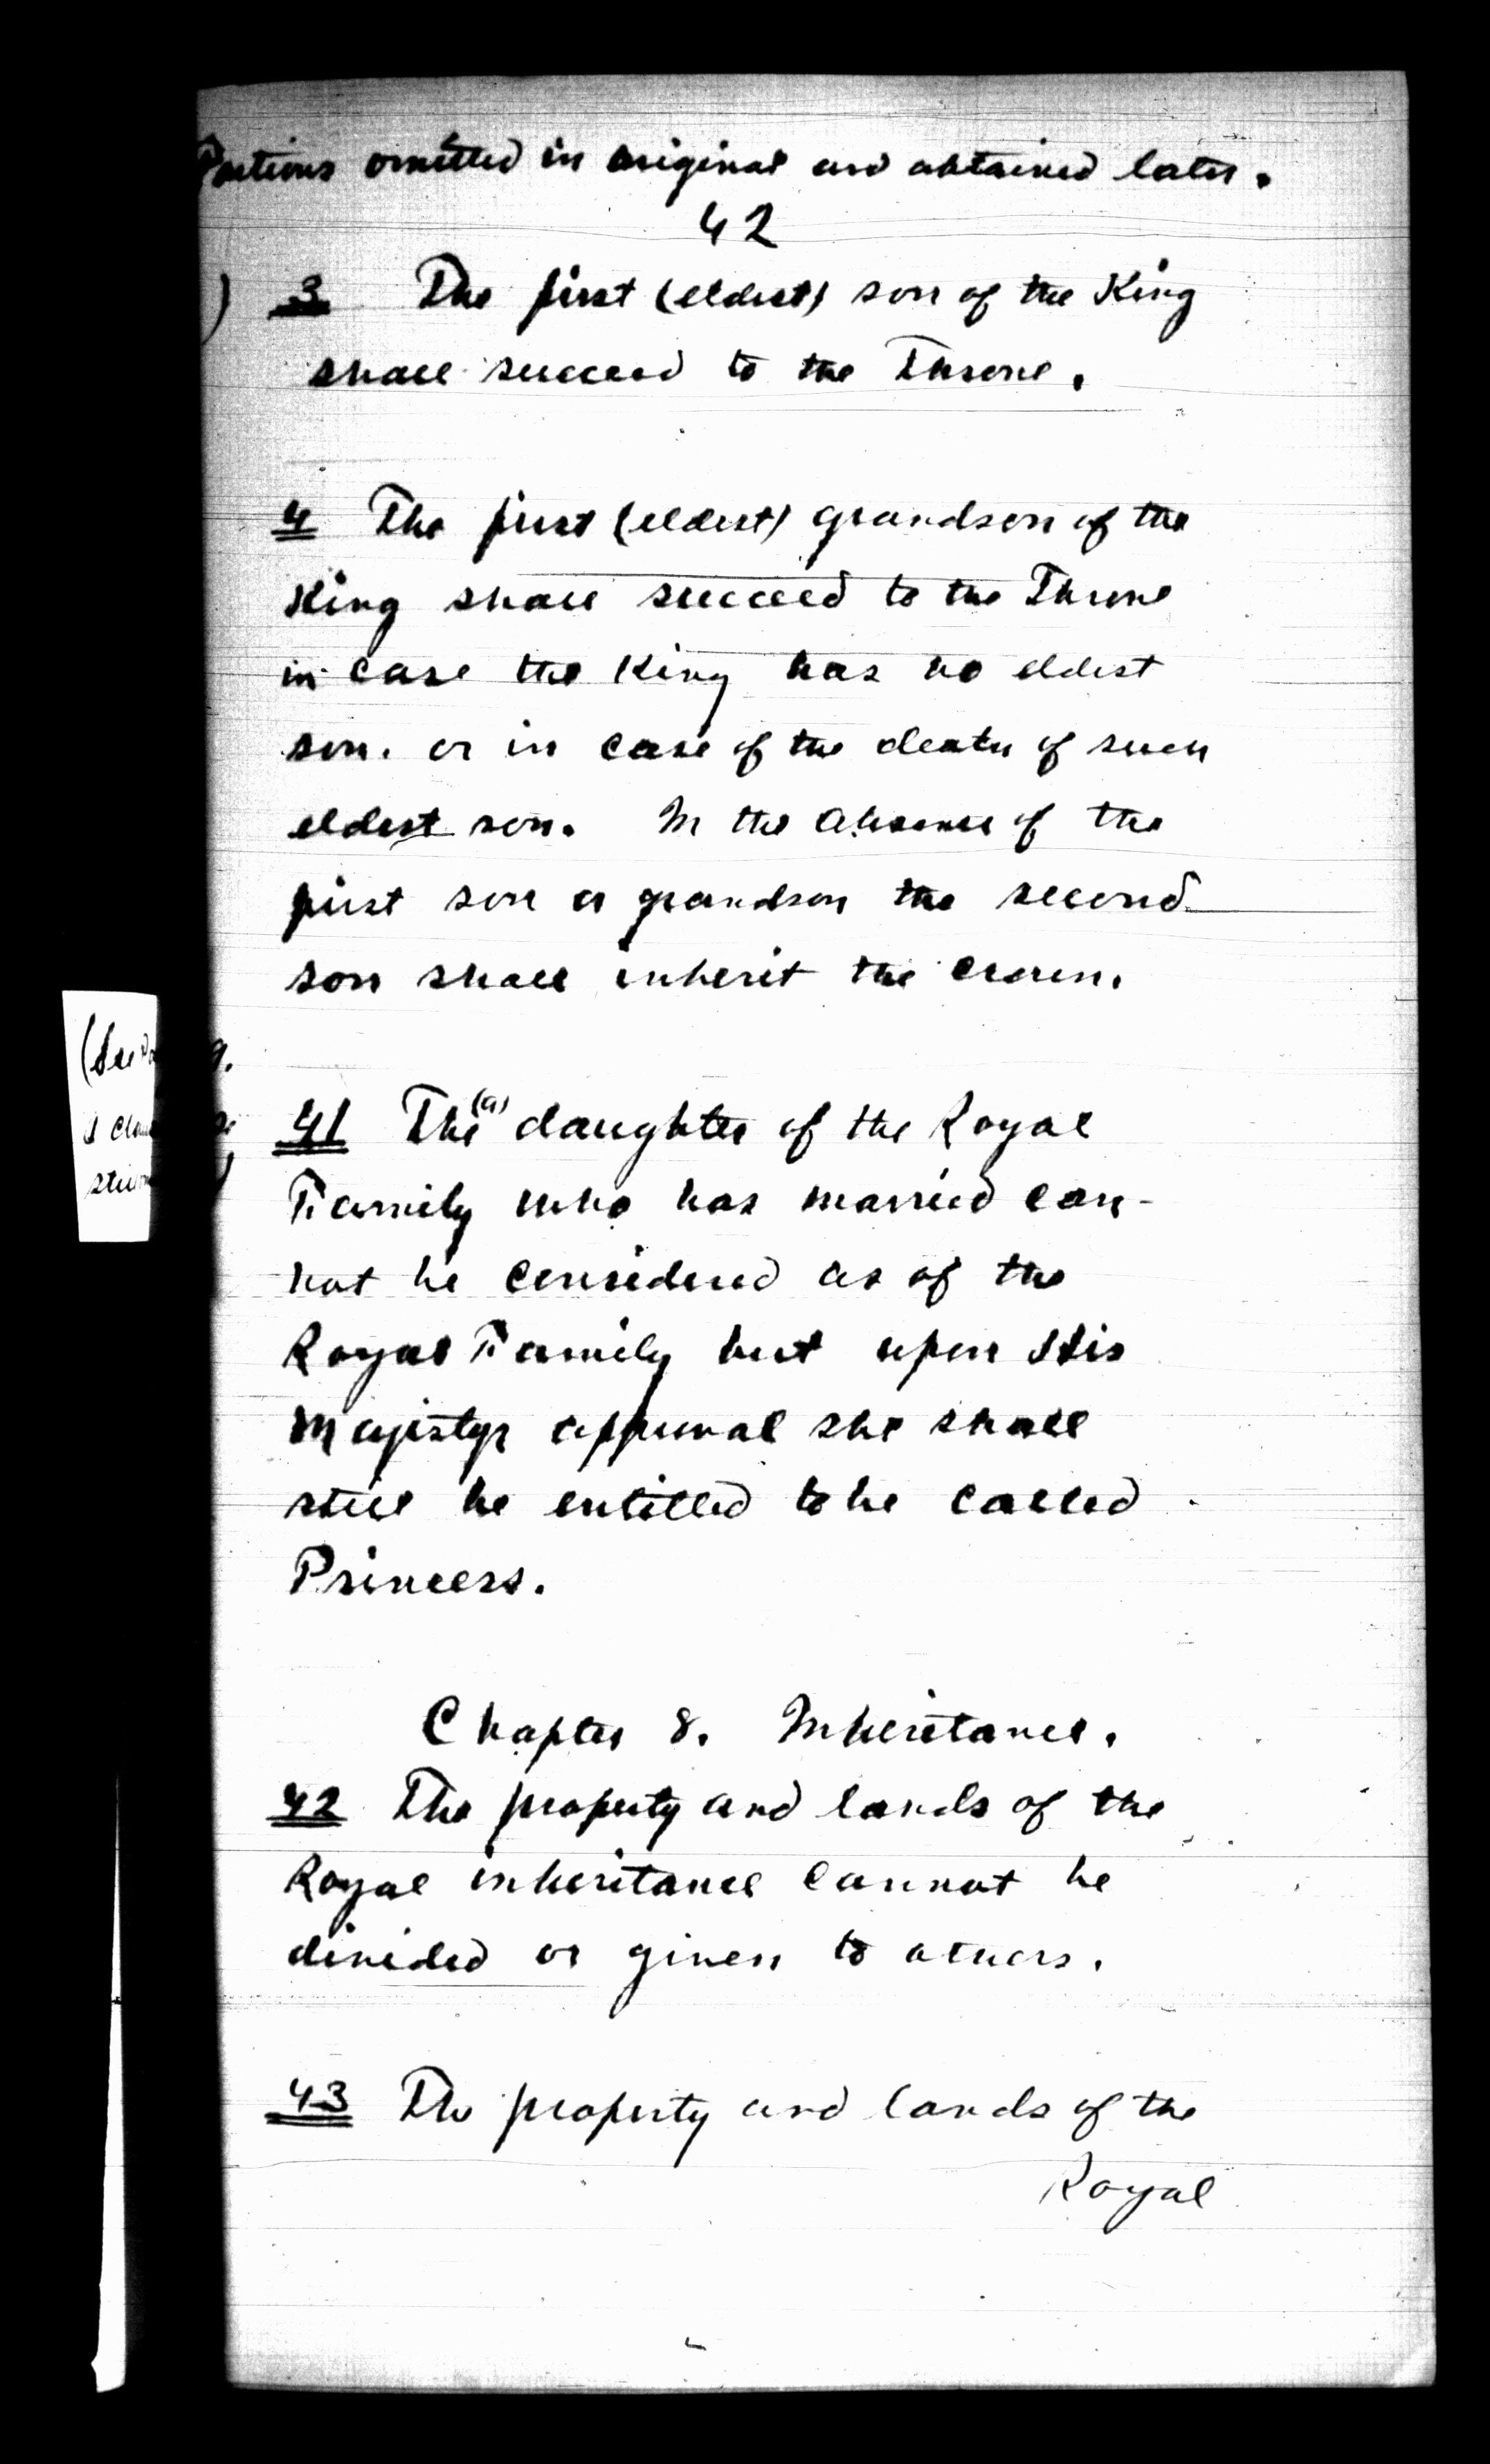 Portions omitted in original and obtained later.
42
) 3 The first (eldest) son of the King
shall succeed to the Throne.
4 The first (eldest) grandson of the
King shall succeed to the Throne
in case the King has no eldest
son. or in case of the death of such
eldest son. In the absence of the
first son or grandson the second
son shall inherit the crown.
(See
41 The (a) daughter of the Royal
Family who has married can-
not be considered as of the
Royal Family but upon His
Majestys approval she shall
still be entitled to be called
Princess.
Chapter 8. Inheritance.
42 The property and lands of the
Royal inheritance cannot be
divided or given to others.
43 The property and lands of the
Royal